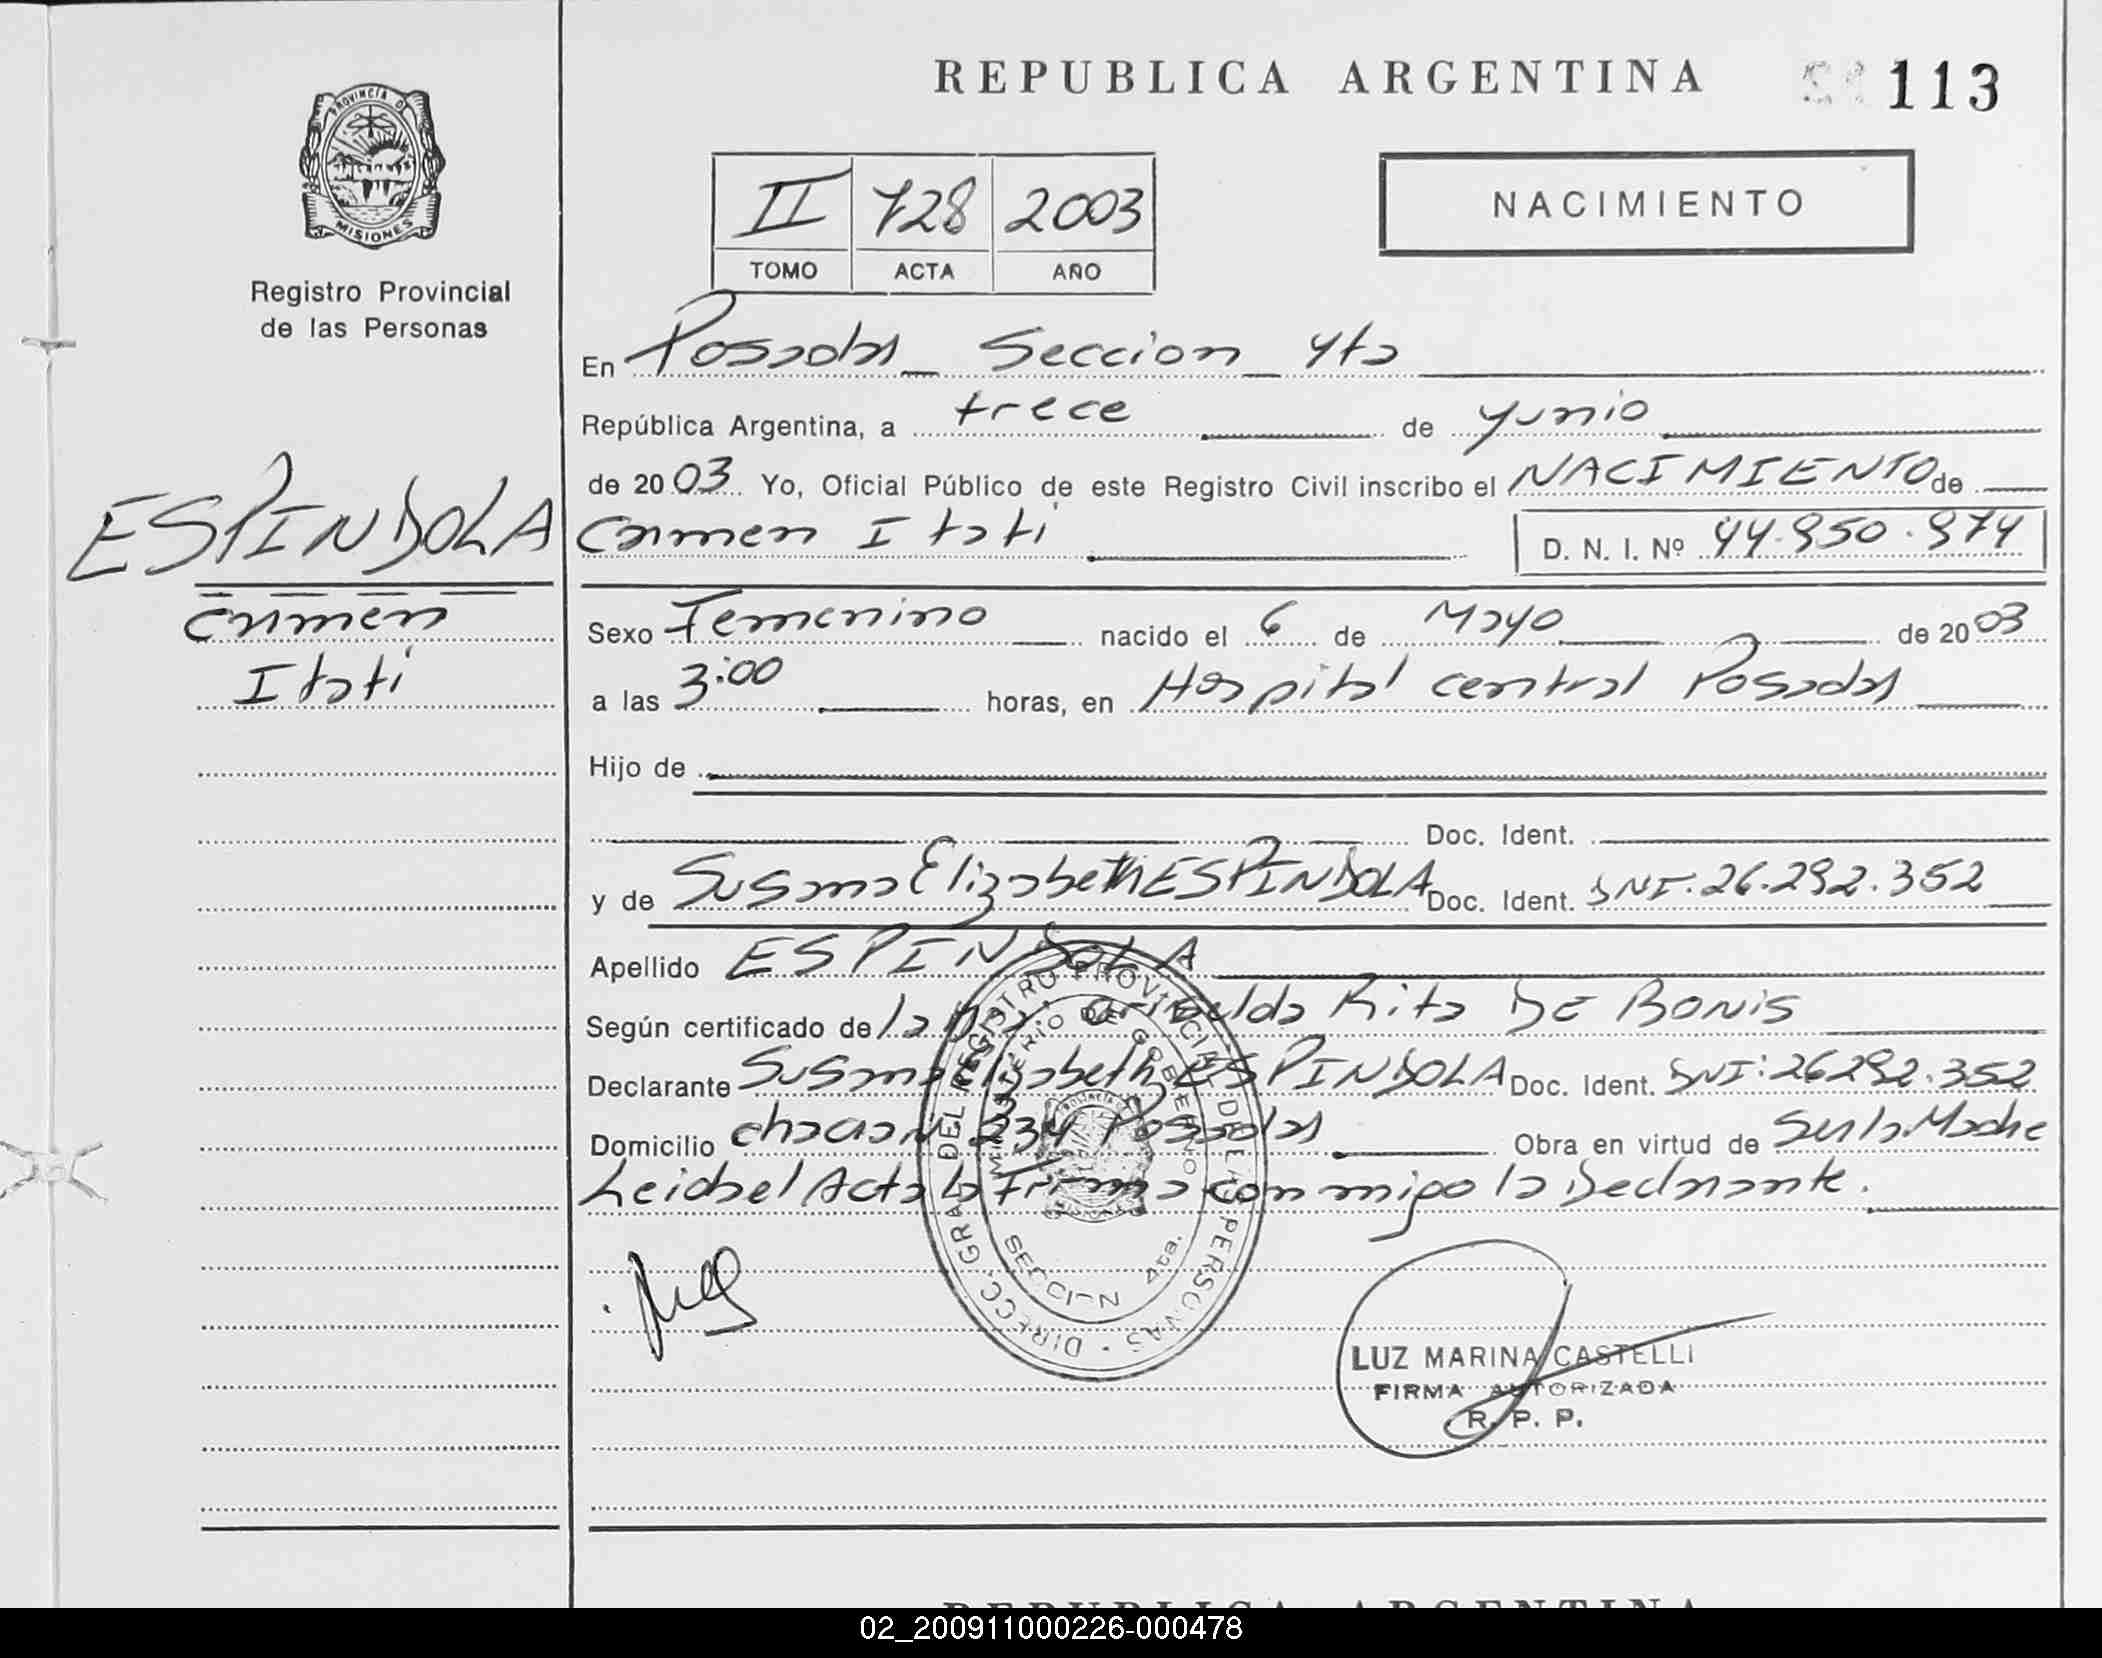 REPUBLICA ARGENTINA
113
PROVINCIA DE
MISIONES
Registro Provincial
de las Personas
II 728 2003
TOMO ACTA AÑO
NACIMIENTO
En Posadas Seccion 4ta
República Argentina, a trece de Junio
de 2003 Yo, Oficial Público de este Registro Civil inscribo el NACIMIENTO de
ESPINDOLA
Carmen Itati
Carmen Itati D. N. I. Nº 44.950.974
Sexo Femenino nacido el 6 de Mayo de 2003
a las 3:00 horas, en Hospital central Posadas
Hijo de
Doc. Ident.
y de Susana Elizabeth ESPINDOLA Doc. Ident. DNI. 26.292.352
Apellido ESPINDOLA
Según certificado de la Rita DE BONIS
Declarante Susana Elizabeth ESPINDOLA Doc. Ident. DNI: 26292.352
Domicilio 234 Posadas Obra en virtud de Ser la Madre
Leida el Acta la Firma conmigo la Declarante.
DIRECC. GRAL DEL REGISTRO PROVINCIAL DE LAS PERSONAS
MINISTERIO DE GOBIERNO
SECCION 4ta.
LUZ MARINA CASTELLI
FIRMA AUTORIZADA
R. P. P.
REPUBLICA ARGENTINA
02_200911000226-000478